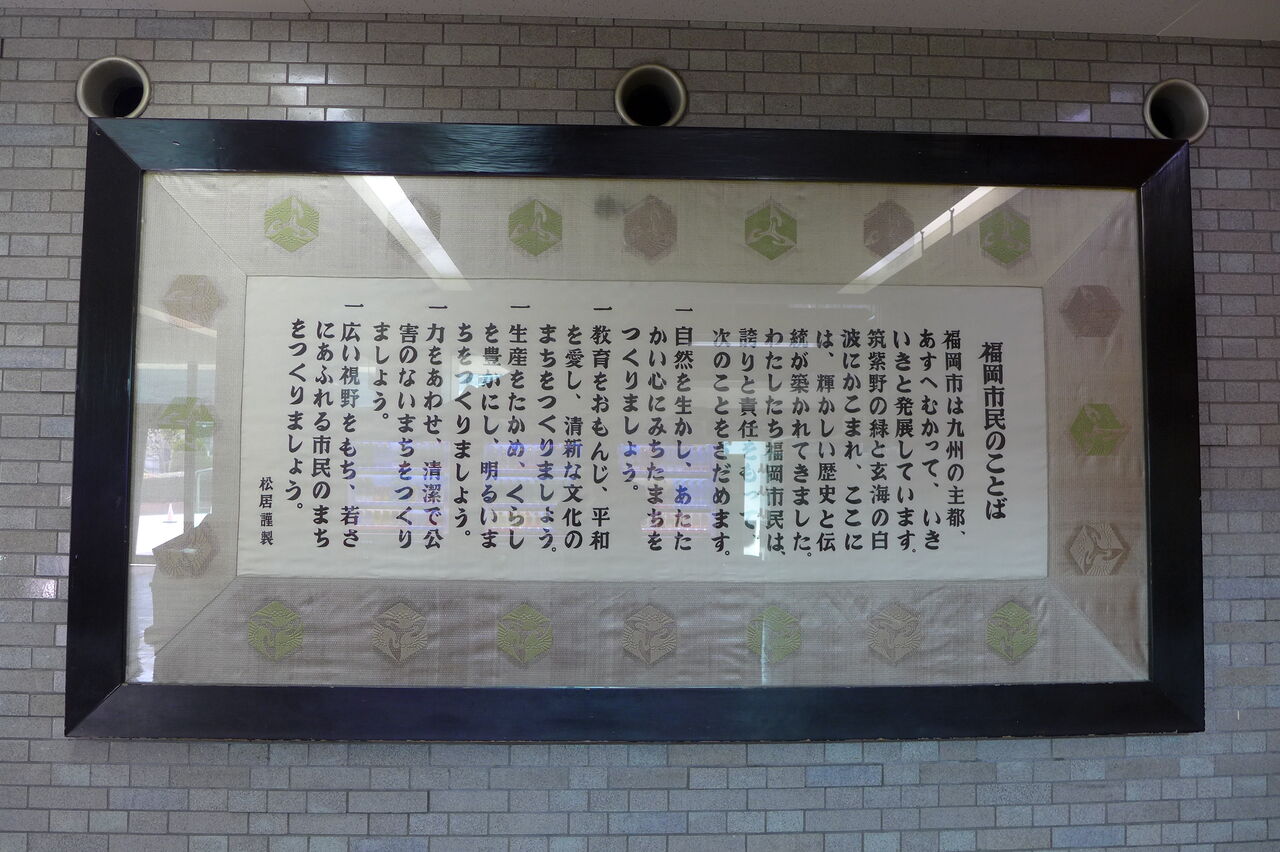 福岡市民のことば
福岡市は九州の主都、
あすへむかって、いき
いきと発展しています。
筑紫野の緑と玄海の白
波にかこまれ、ここに
は、輝かしい歴史と伝
統が築かれてきました。
わたしたち福岡市民は、
誇りと責任をもって、
次のことをさだめます。
一自然を生かし、あたた
かい心にみちたまちを
つくりましょう。
一教育をおもんじ、平和
を愛し、清新な文化の
まちをつくりましょう。
一生産をたかめ、くらし
を豊かにし、明るいま
ちをつくりましょう。
一力をあわせ、清潔で公
害のないまちをつくり
ましょう。
一広い視野をもち、若さ
にあふれる市民のまち
をつくりましょう。
松居謹製